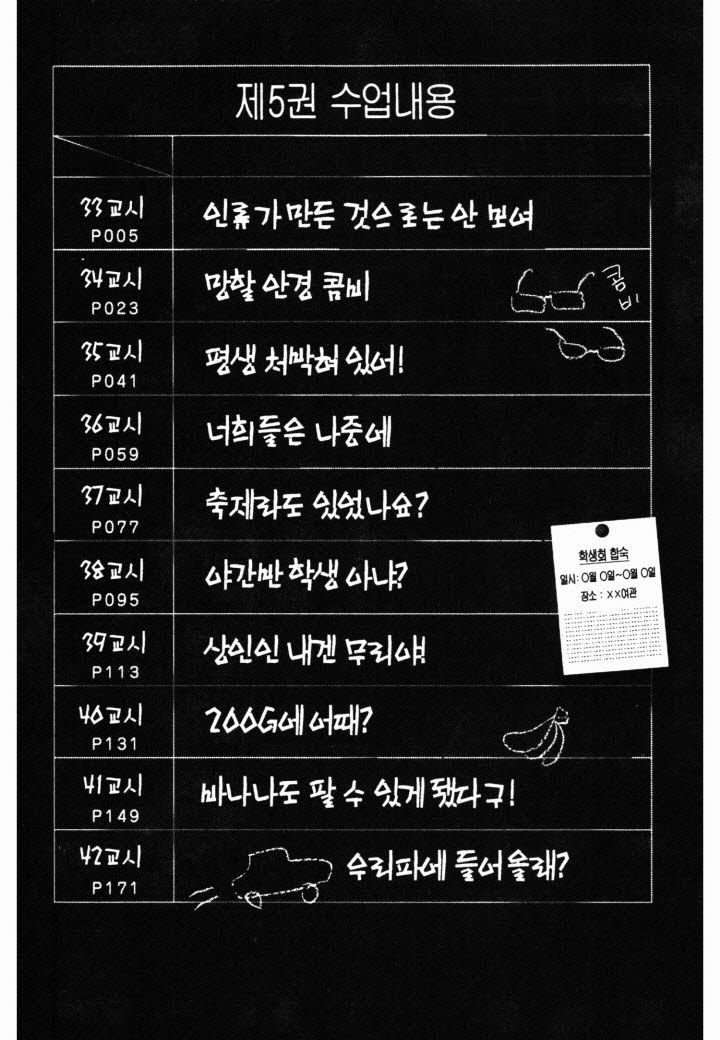 제5권 수업내용
33교시
P005
인류가 만든 것으로는 안 보여
34교시
P023
망할 안경 콤비
콤비
35교시
P041
평생 처박혀 있어!
36교시
P059
너희들은 나중에
37교시
P077
축제라도 있었나요?
38교시
P095
야간반 학생 아냐?
학생회 합숙
일시: O월 O일~O월 O일
장소 : ××여관
39교시
P113
상인인 내겐 무리야!
40교시
P131
200G에 어때?
41교시
P149
바나나도 팔 수 있게 됐다구!
42교시
P171
우리파에 들어올래?